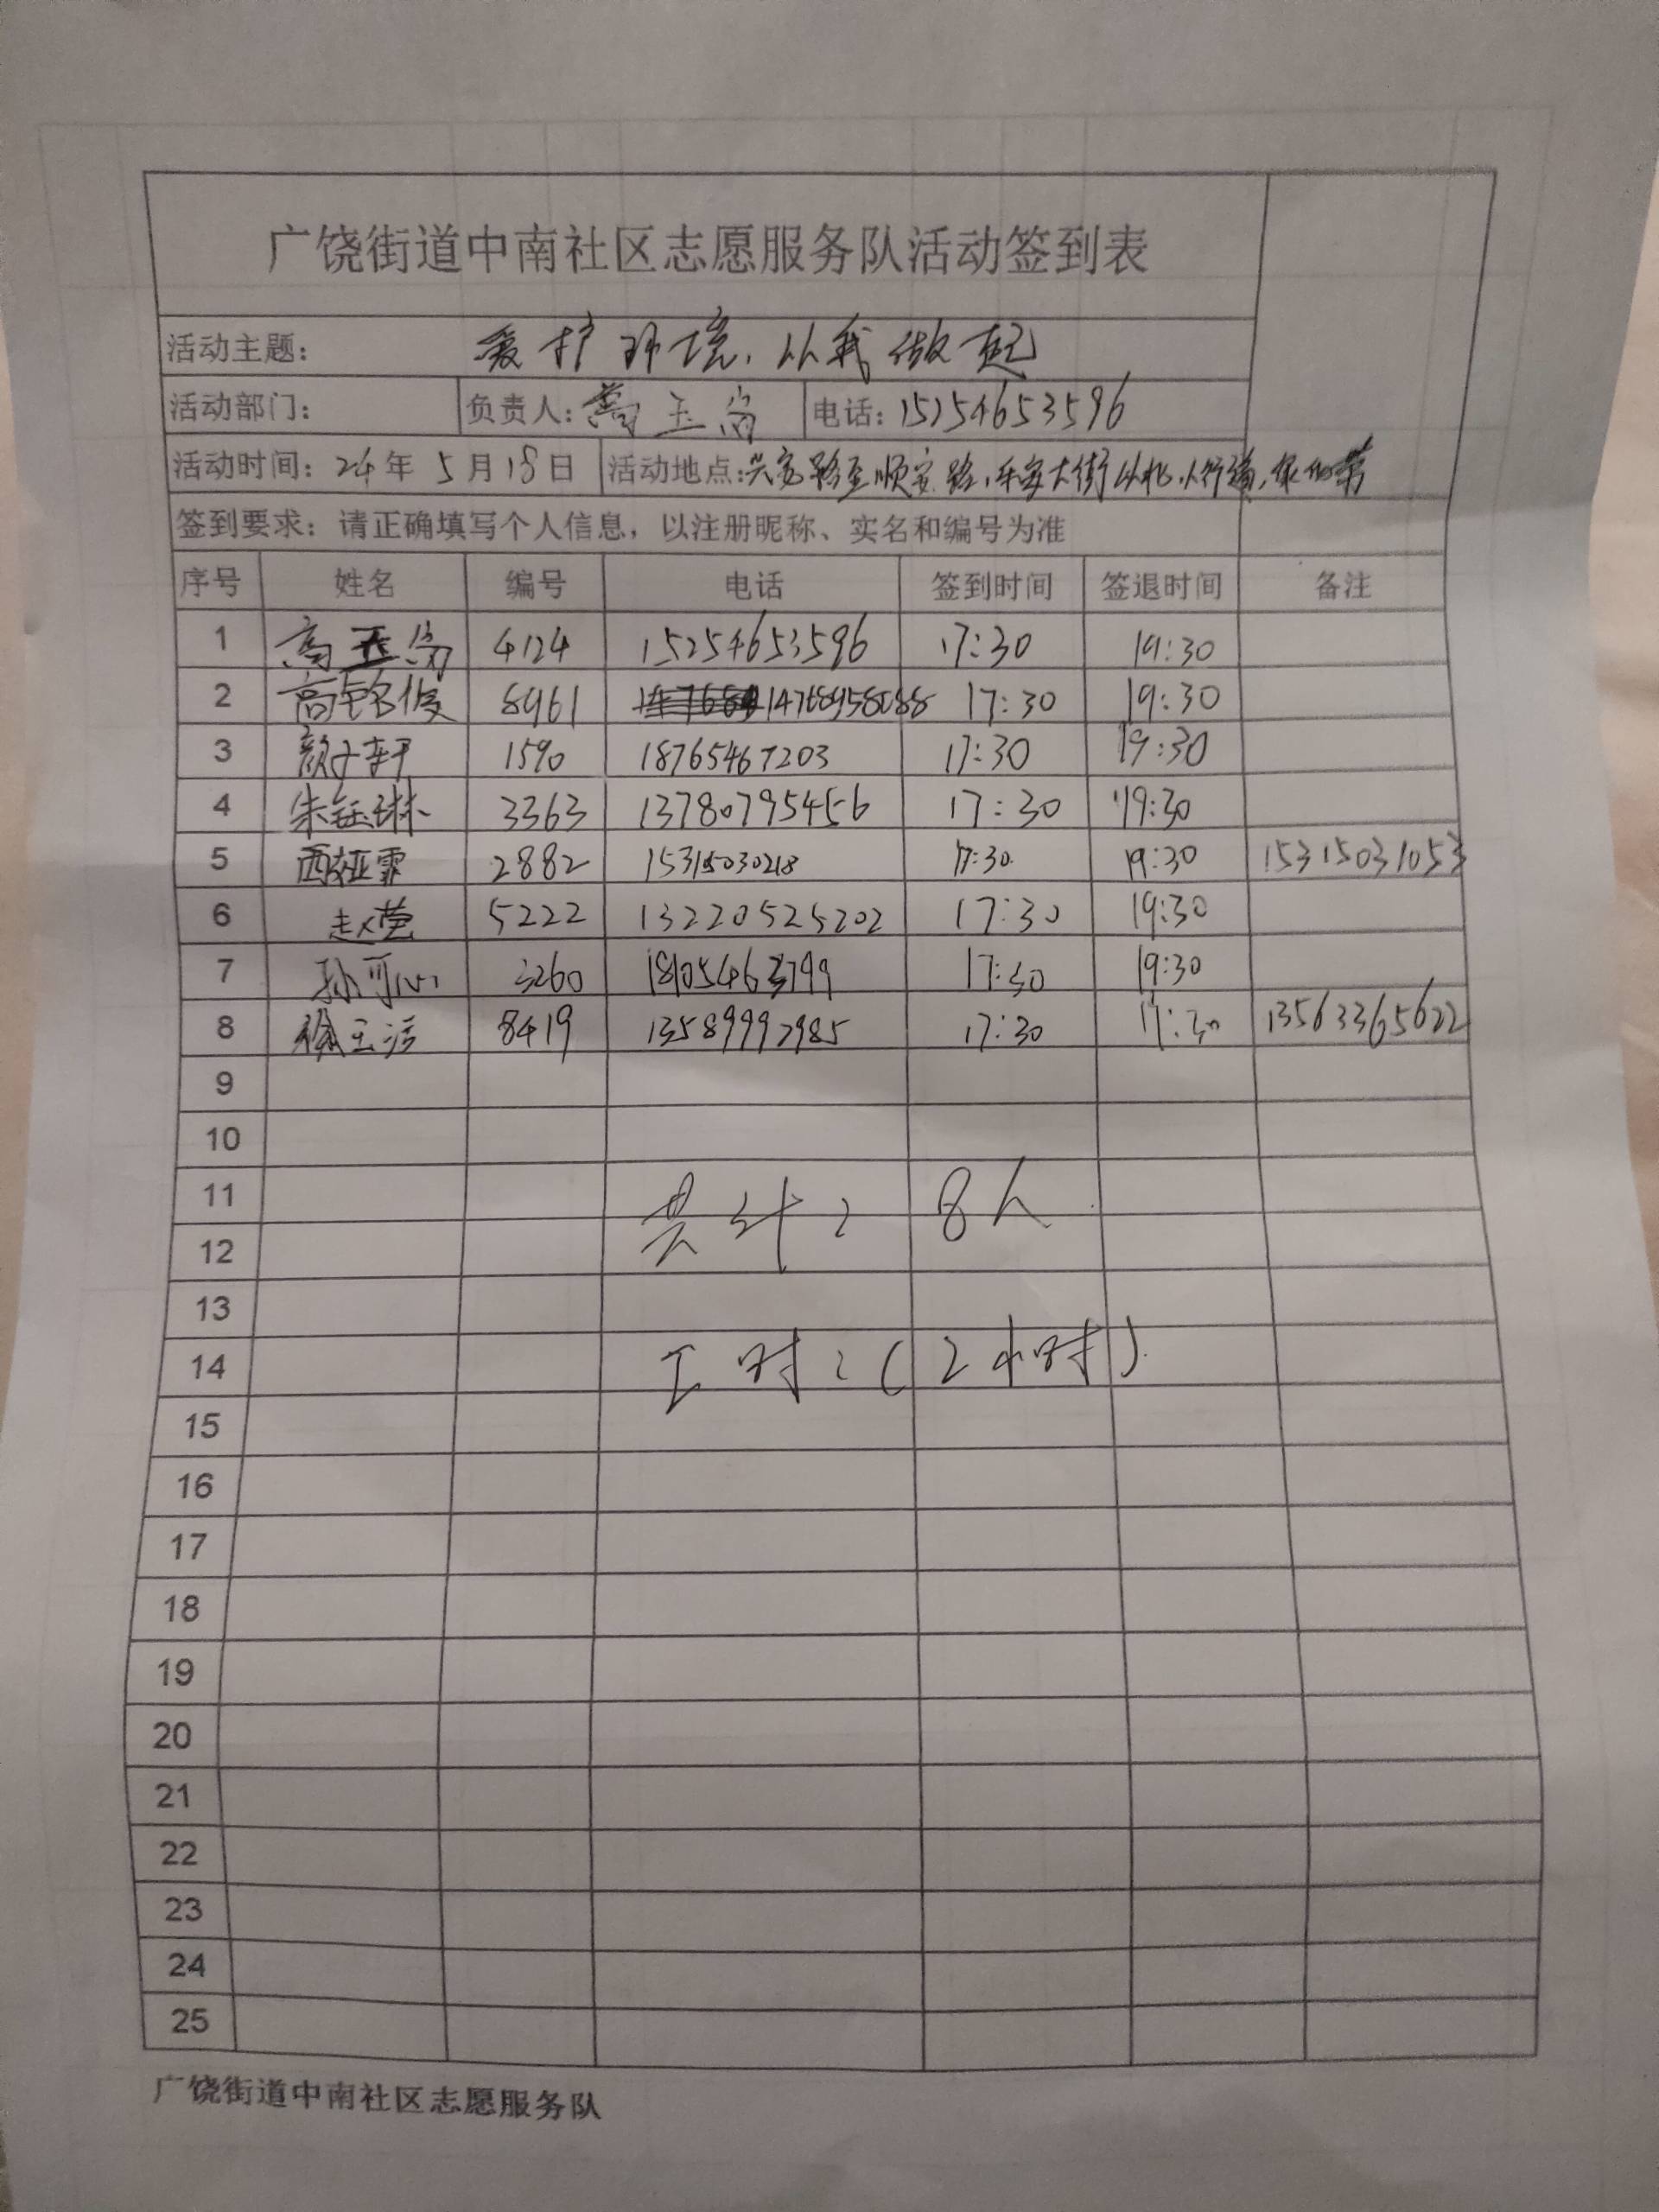 广饶街道中南社区志愿服务队活动签到表
活动主题: 爱护环境,从我做起
活动部门: 负责人: 高玉 电话: 15254653596
活动时间: 24年 5月18日 活动地点: 兴安路至顺安路,乐安大街以北,人行道,绿化带
签到要求: 请正确填写个人信息,以注册昵称、实名和编号为准
序号 姓名 编号 电话 签到时间 签退时间 备注
1 高玉 4124 15254653596 17:30 19:30
2 高铭俊 8961 14768958088 17:30 19:30
3 颜子轩 1590 18765467203 17:30 19:30
4 朱钰琳 3363 13780795456 17:30 19:30
5 2882 15315030218 17:30 19:30 15315031053
6 赵莹 5222 13220525202 17:30 19:30
7 孙可心 3260 17:30 19:30
8 徐玉洁 8419 13589992985 17:30 13563365622
9
10
11
共计: 8人
12
13
14
工时:(2小时)
15
16
17
18
19
20
21
22
23
24
25
广饶街道中南社区志愿服务队